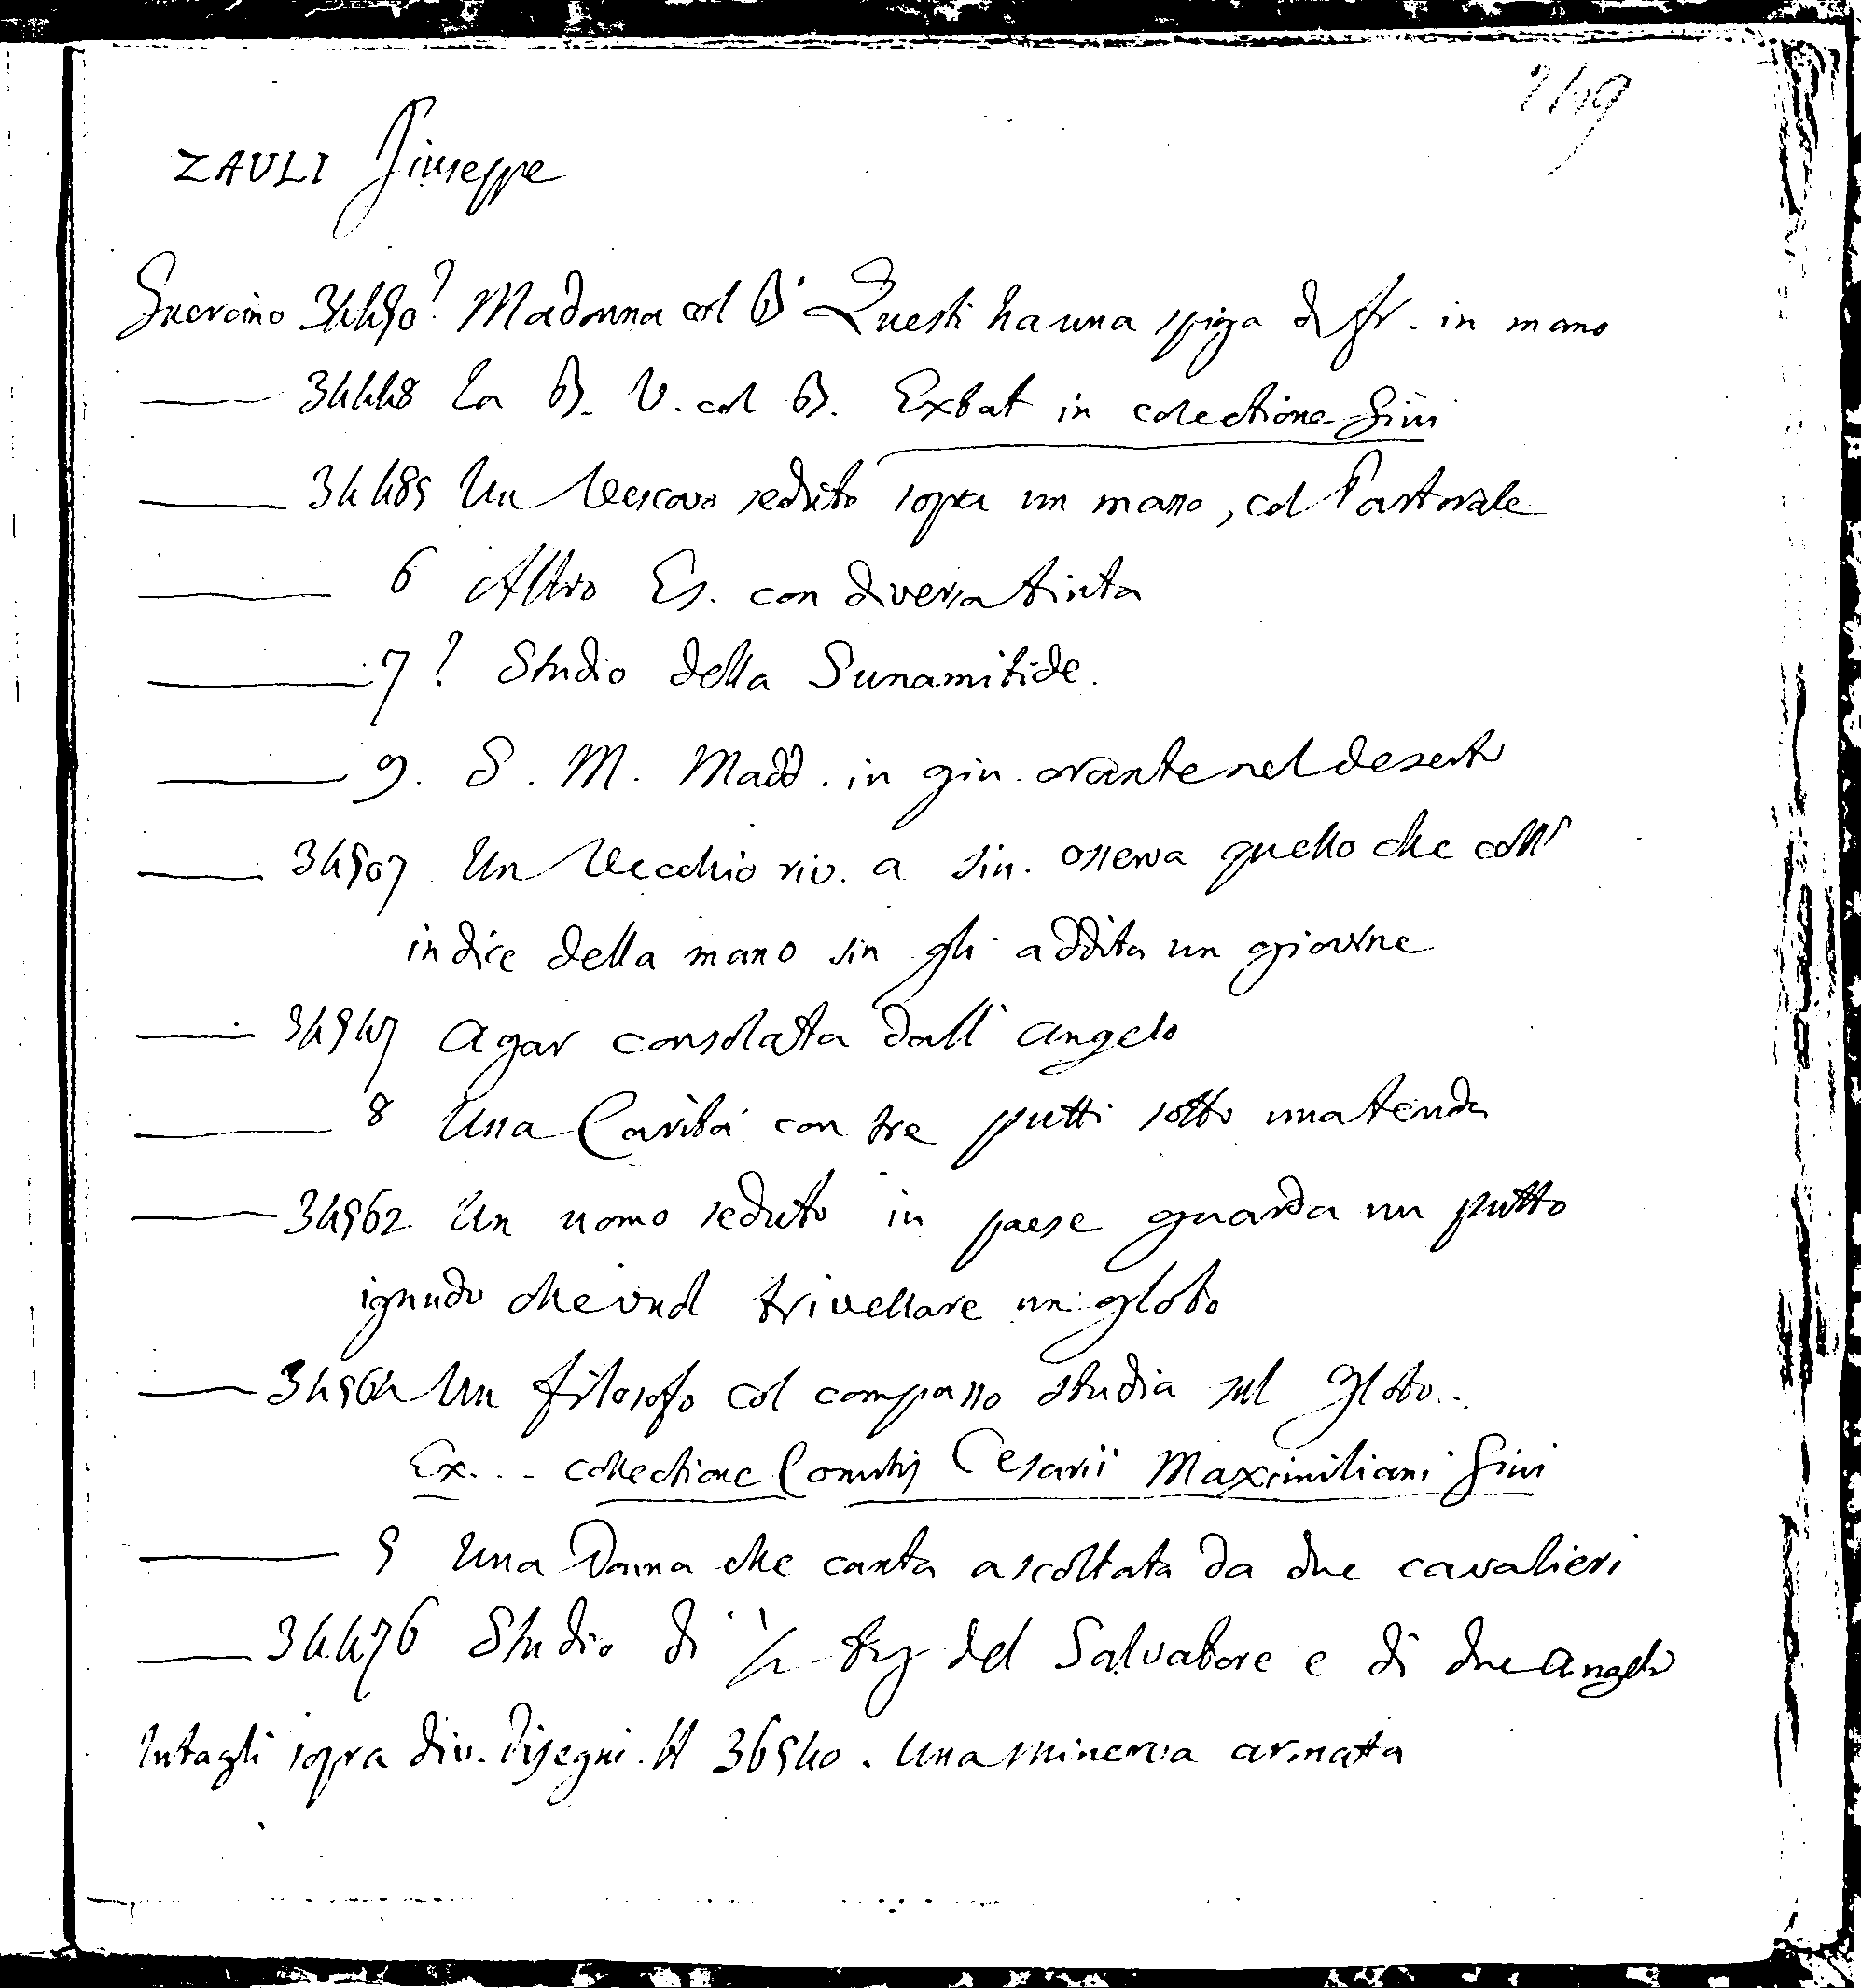 249
ZAULI Giuseppe
Guercino 34450? Madonna col B. Questi ha una spiga di fr. in mano
—— 34448 La B. V. col B. Extat in colectione Gini
—— 34485 Un Vescovo seduto sopra un masso, col Pastorale
—— 6 Altro Es. con diversa tinta
—— 7? Studio della Sunamitide.
—— 9. S. M. Madd. in gin. orante nel deserto
—— 34507 Un Vecchio riv. a sin. osserva quello che coll'
indice della mano sin gli addita un giovine
—— 34547 Agar consolata dall'angelo
—— 8 Una Carità con tre putti sotto una tenda
—— 34562 Un uomo seduto in paese guarda un putto
ignudo che vuol trivellare un globo
—— 34564 Un filosofo col compasso studia sul globo..
Ex... collectione Comitis Cesarii Maximiliani Gini
—— 5 Una Dama che canta ascoltata da due cavalieri
—— 34476 Studio di ½ fig del Salvatore e di due angeli
Intagli sopra div. Disegni. H 36540. Una Minerva armata